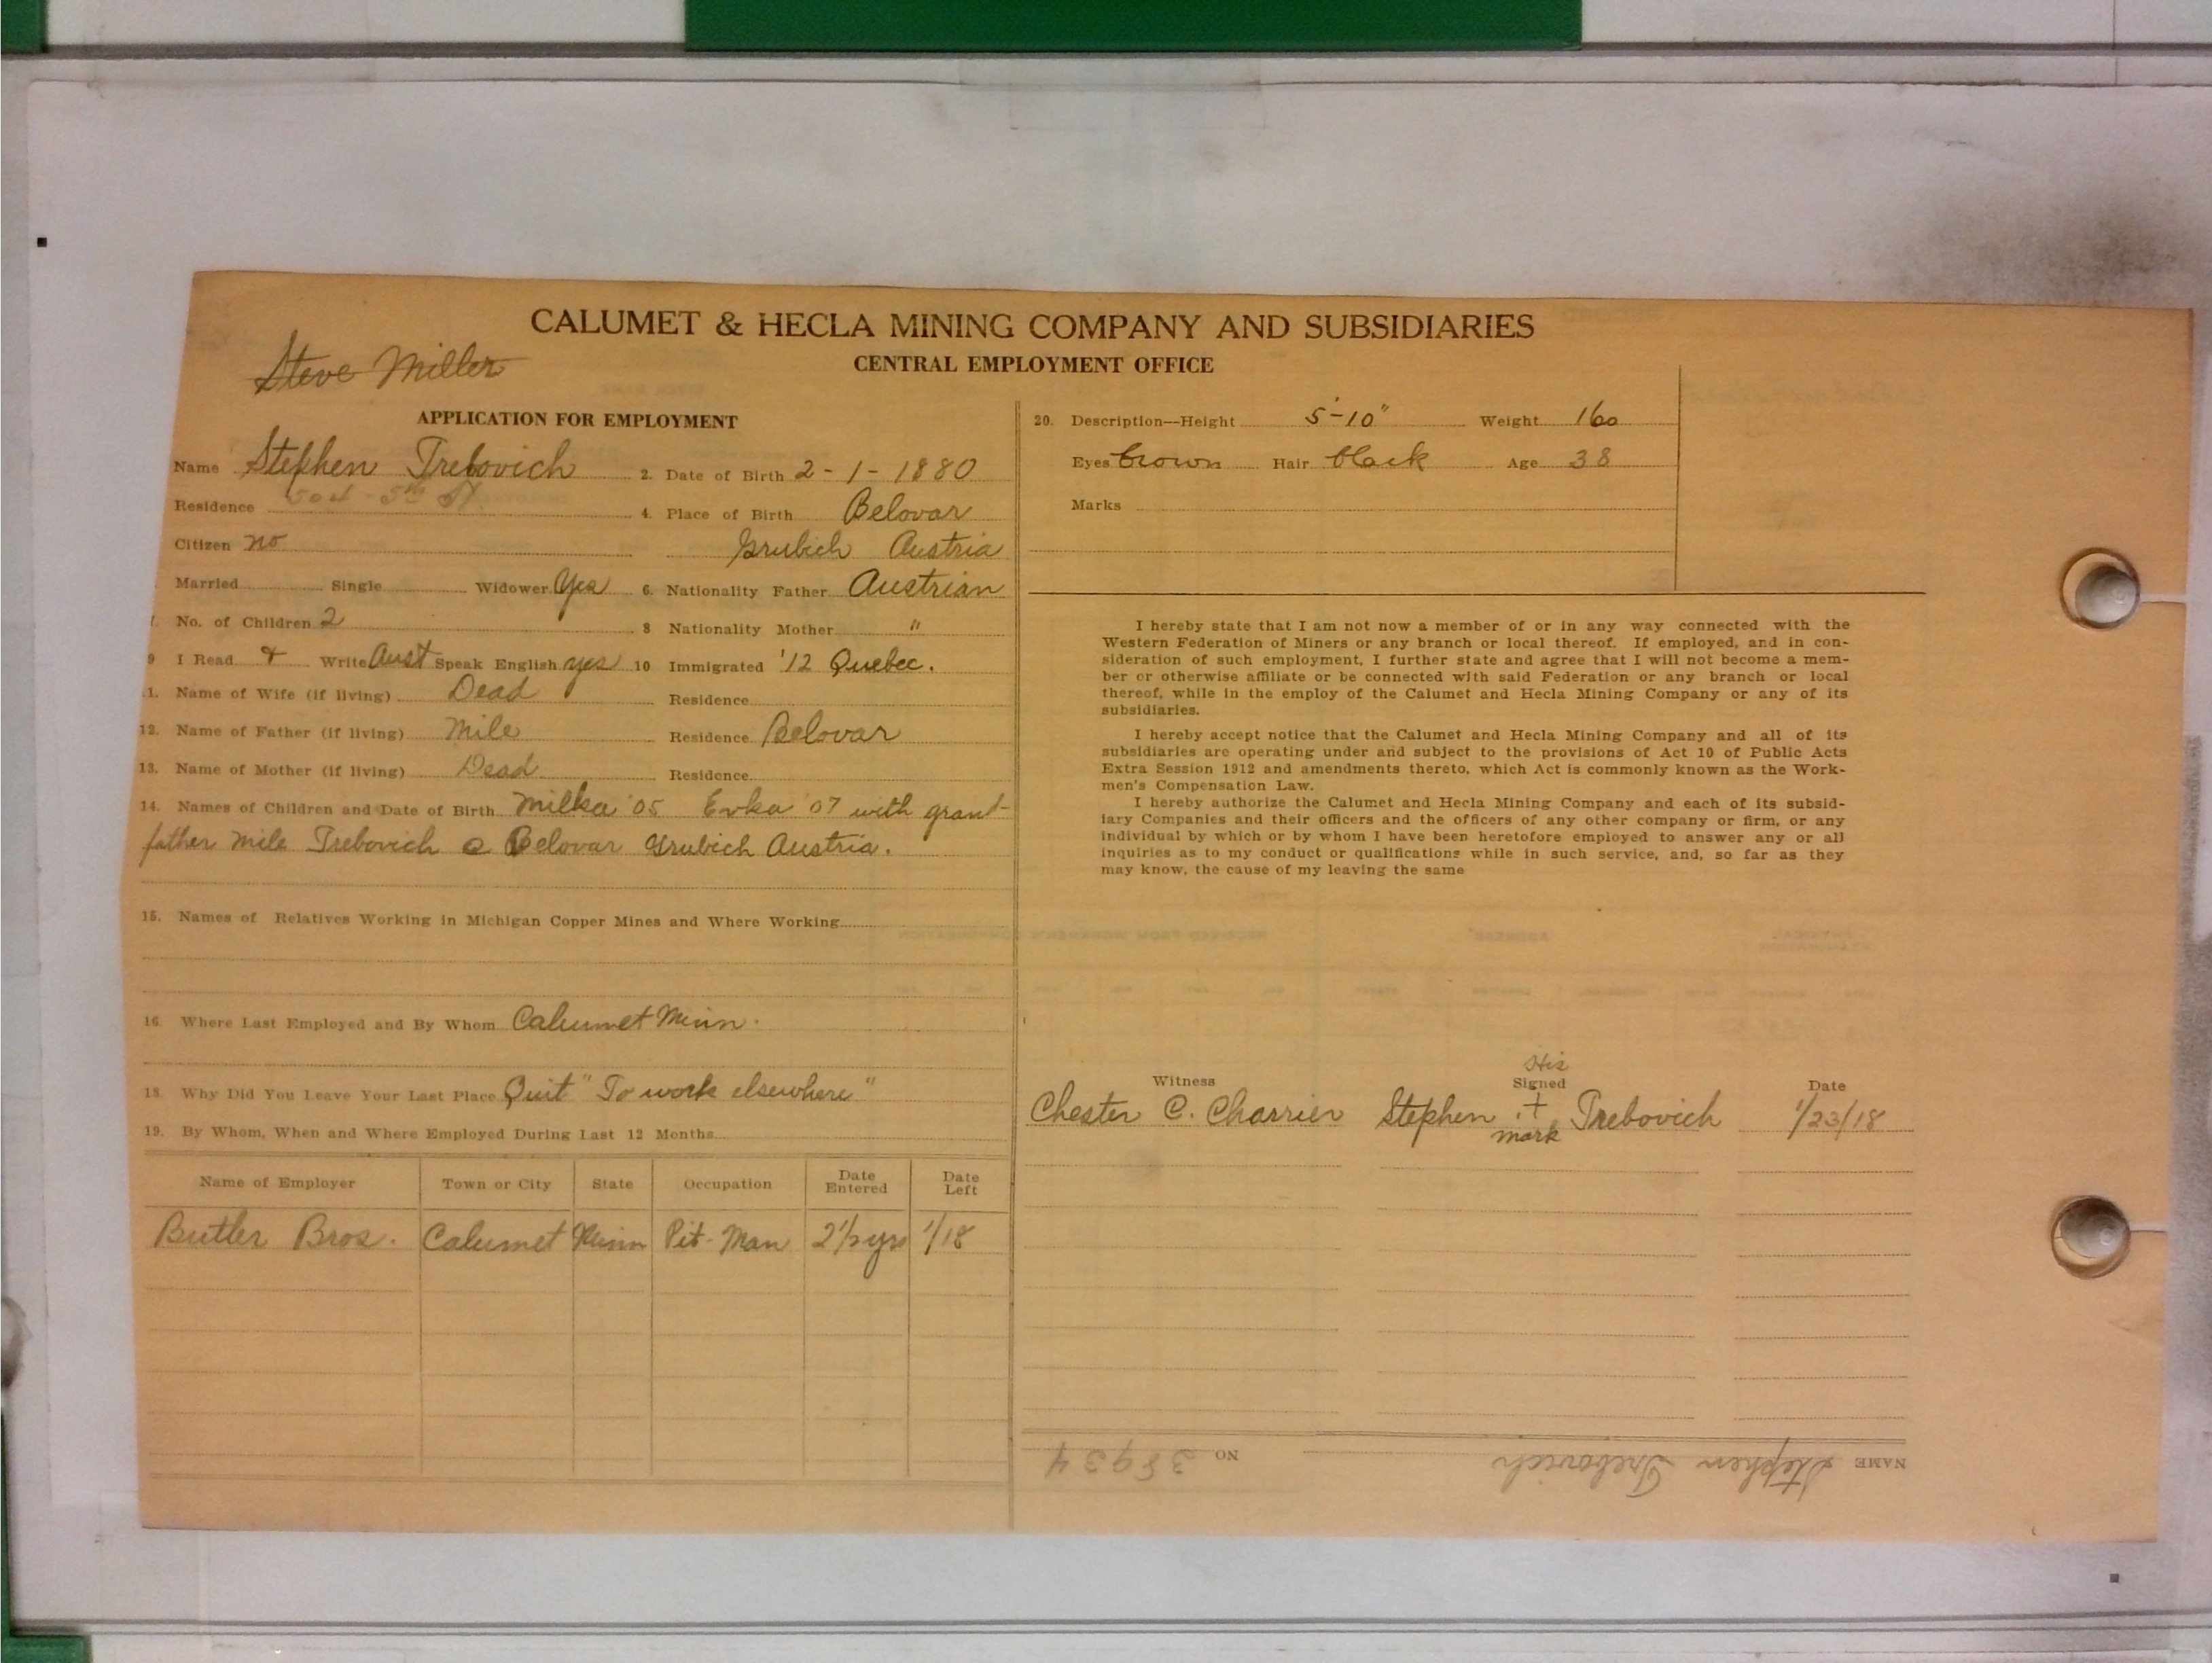 CALUMET & HECLA MINING COMPANY AND SUBSIDIARIES
CENTRAL EMPLOYMENT OFFICE
Steve Miller
APPLICATION FOR EMPLOYMENT
Name Stephen Trebovich 2. Date of Birth 2-1-1880
Residence 504-5th St. 4. Place of Birth Belovar
Citizen no Grubich Austria
Married Single Widower Yes 6. Nationality Father Austrian
No. of Children 2 8 Nationality Mother "
9 I Read & Write Aust Speak English yes 10 Immigrated '12 Quebec.
11. Name of Wife (if living) Dead Residence
12. Name of Father (if living) Mile Residence Belovar
13. Name of Mother (if living) Dead Residence
14. Names of Children and Date of Birth Milka '05 Evka '07 with grand-
father Mile Trebovich @ Belovar Grubich Austria.
15. Names of Relatives Working in Michigan Copper Mines and Where Working
16. Where Last Employed and By Whom Calumet Minn.
18. Why Did You Leave Your Last Place Quit "To work elsewhere"
19. By Whom, When and Where Employed During Last 12 Months
Name of Employer Town or City State Occupation Date Entered Date Left
Butler Bros. Calumet Minn Pit-Man 2 1/2 yrs 1/18
20. Description—Height 5'-10" Weight 160
Eyes brown Hair black Age 38
Marks
I hereby state that I am not now a member of or in any way connected with the
Western Federation of Miners or any branch or local thereof. If employed, and in con-
sideration of such employment, I further state and agree that I will not become a mem-
ber or otherwise affiliate or be connected with said Federation or any branch or local
thereof, while in the employ of the Calumet and Hecla Mining Company or any of its
subsidiaries.
I hereby accept notice that the Calumet and Hecla Mining Company and all of its
subsidiaries are operating under and subject to the provisions of Act 10 of Public Acts
Extra Session 1912 and amendments thereto, which Act is commonly known as the Work-
men's Compensation Law.
I hereby authorize the Calumet and Hecla Mining Company and each of its subsid-
iary Companies and their officers and the officers of any other company or firm, or any
individual by which or by whom I have been heretofore employed to answer any or all
inquiries as to my conduct or qualifications while in such service, and, so far as they
may know, the cause of my leaving the same
His
Witness Signed Date
Chester C. Charrier Stephen + Trebovich 1/23/18
mark
NAME Stephen Trebovich NO 38934